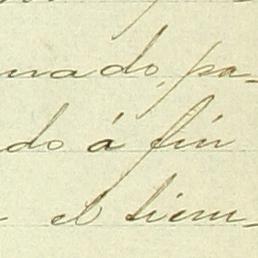 nado, pa-
do á fin
el tiem-